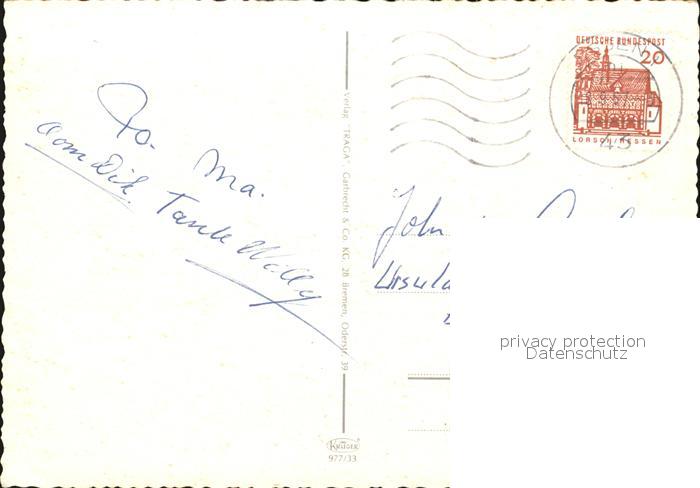 Jo- Ma.
Tante Willy
Verlag "TRAGA", Garbrecht & Co. KG. 28 Bremen, Oderstr. 39
KRÜGER
977/33
DEUTSCHE BUNDESPOST
20
LORSCH/HESSEN
43
John
Ursula
privacy protection
Datenschutz